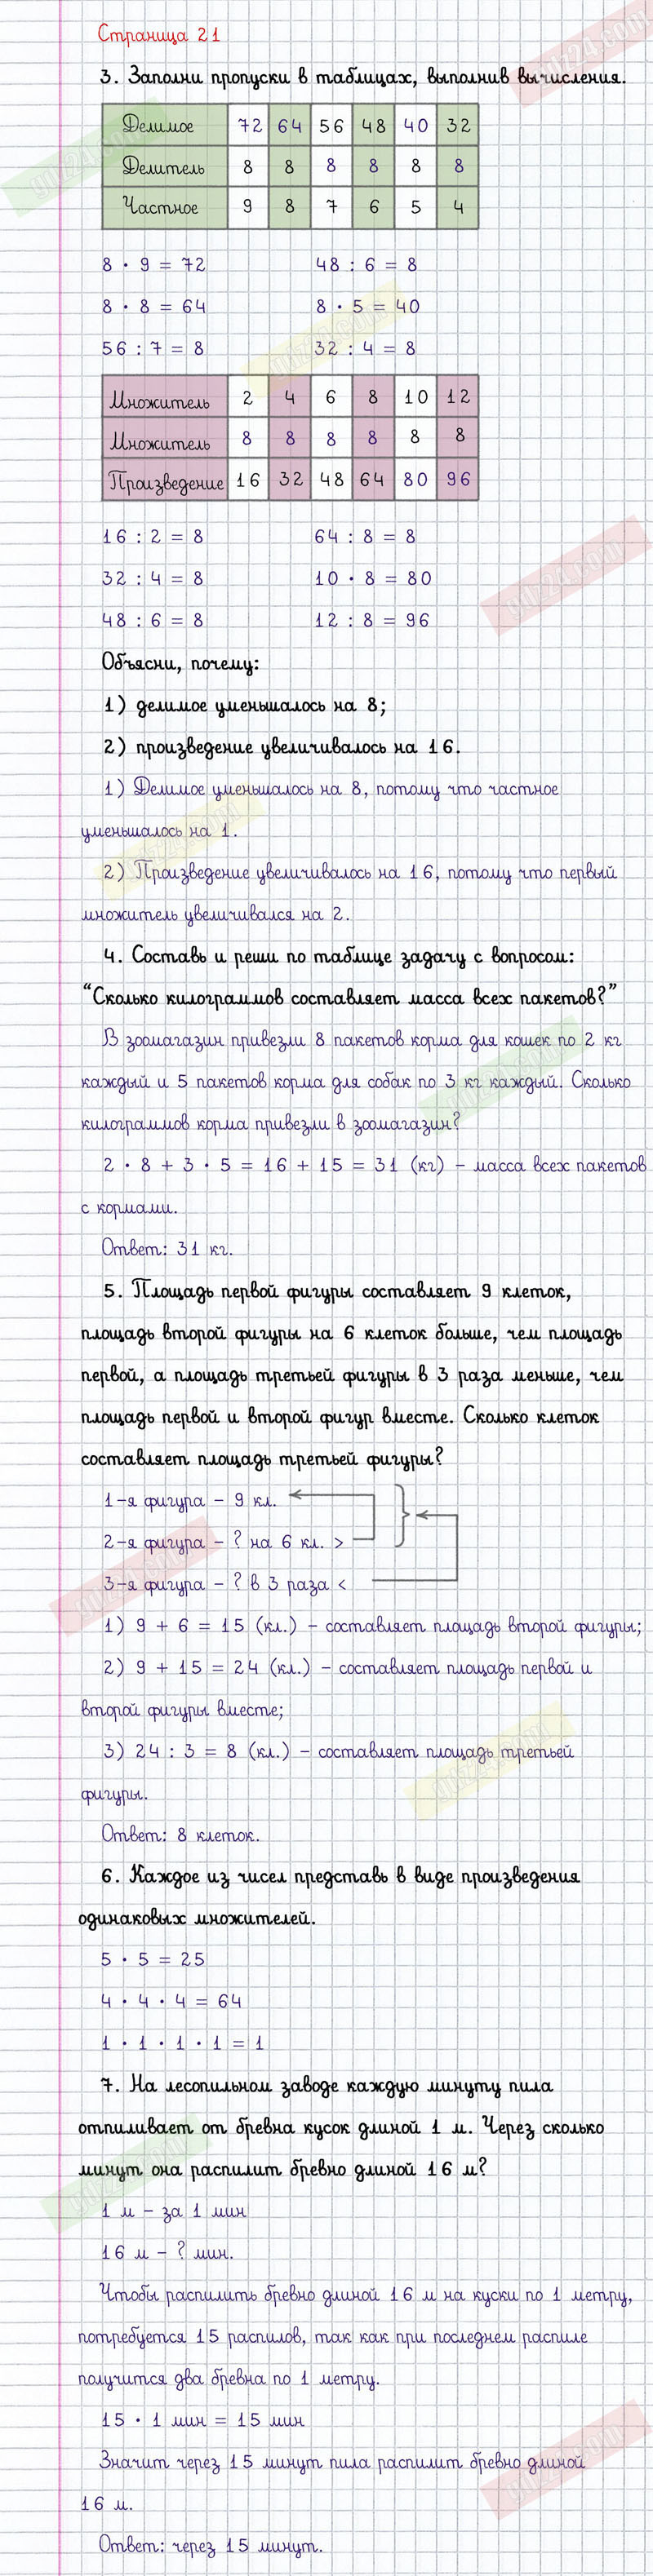 Страница 21
3. Заполни пропуски в таблицах, выполнив вычисления.
Делимое 72 64 56 48 40 32
Делитель 8 8 8 8 8 8
Частное 9 8 7 6 5 4
8 · 9 = 72 48 : 6 = 8
8 · 8 = 64 8 · 5 = 40
56 : 7 = 8 32 : 4 = 8
Множитель 2 4 6 8 10 12
Множитель 8 8 8 8 8 8
Произведение 16 32 48 64 80 96
16 : 2 = 8 64 : 8 = 8
32 : 4 = 8 10 · 8 = 80
48 : 6 = 8 12 : 8 = 96
Объясни, почему:
1) делимое уменьшалось на 8;
2) произведение увеличивалось на 16.
1) Делимое уменьшалось на 8, потому что частное
уменьшалось на 1.
2) Произведение увеличивалось на 16, потому что первый
множитель увеличивался на 2.
4. Составь и реши по таблице задачу с вопросом:
“Сколько килограммов составляет масса всех пакетов?”
В зоомагазин привезли 8 пакетов корма для кошек по 2 кг
каждый и 5 пакетов корма для собак по 3 кг каждый. Сколько
килограммов корма привезли в зоомагазин?
2 · 8 + 3 · 5 = 16 + 15 = 31 (кг) – масса всех пакетов
с кормами.
Ответ: 31 кг.
5. Площадь первой фигуры составляет 9 клеток,
площадь второй фигуры на 6 клеток больше, чем площадь
первой, а площадь третьей фигуры в 3 раза меньше, чем
площадь первой и второй фигур вместе. Сколько клеток
составляет площадь третьей фигуры?
1-я фигура – 9 кл.
2-я фигура – ? на 6 кл. >
3-я фигура – ? в 3 раза <
1) 9 + 6 = 15 (кл.) – составляет площадь второй фигуры;
2) 9 + 15 = 24 (кл.) – составляет площадь первой и
второй фигуры вместе;
3) 24 : 3 = 8 (кл.) – составляет площадь третьей
фигуры.
Ответ: 8 клеток.
6. Каждое из чисел представь в виде произведения
одинаковых множителей.
5 · 5 = 25
4 · 4 · 4 = 64
1 · 1 · 1 · 1 = 1
7. На лесопильном заводе каждую минуту пила
отпиливает от бревна кусок длиной 1 м. Через сколько
минут она распилит бревно длиной 16 м?
1 м – за 1 мин
16 м – ? мин.
Чтобы распилить бревно длиной 16 м на куски по 1 метру,
потребуется 15 распилов, так как при последнем распиле
получится два бревна по 1 метру.
15 · 1 мин = 15 мин
Значит через 15 минут пила распилит бревно длиной
16 м.
Ответ: через 15 минут.